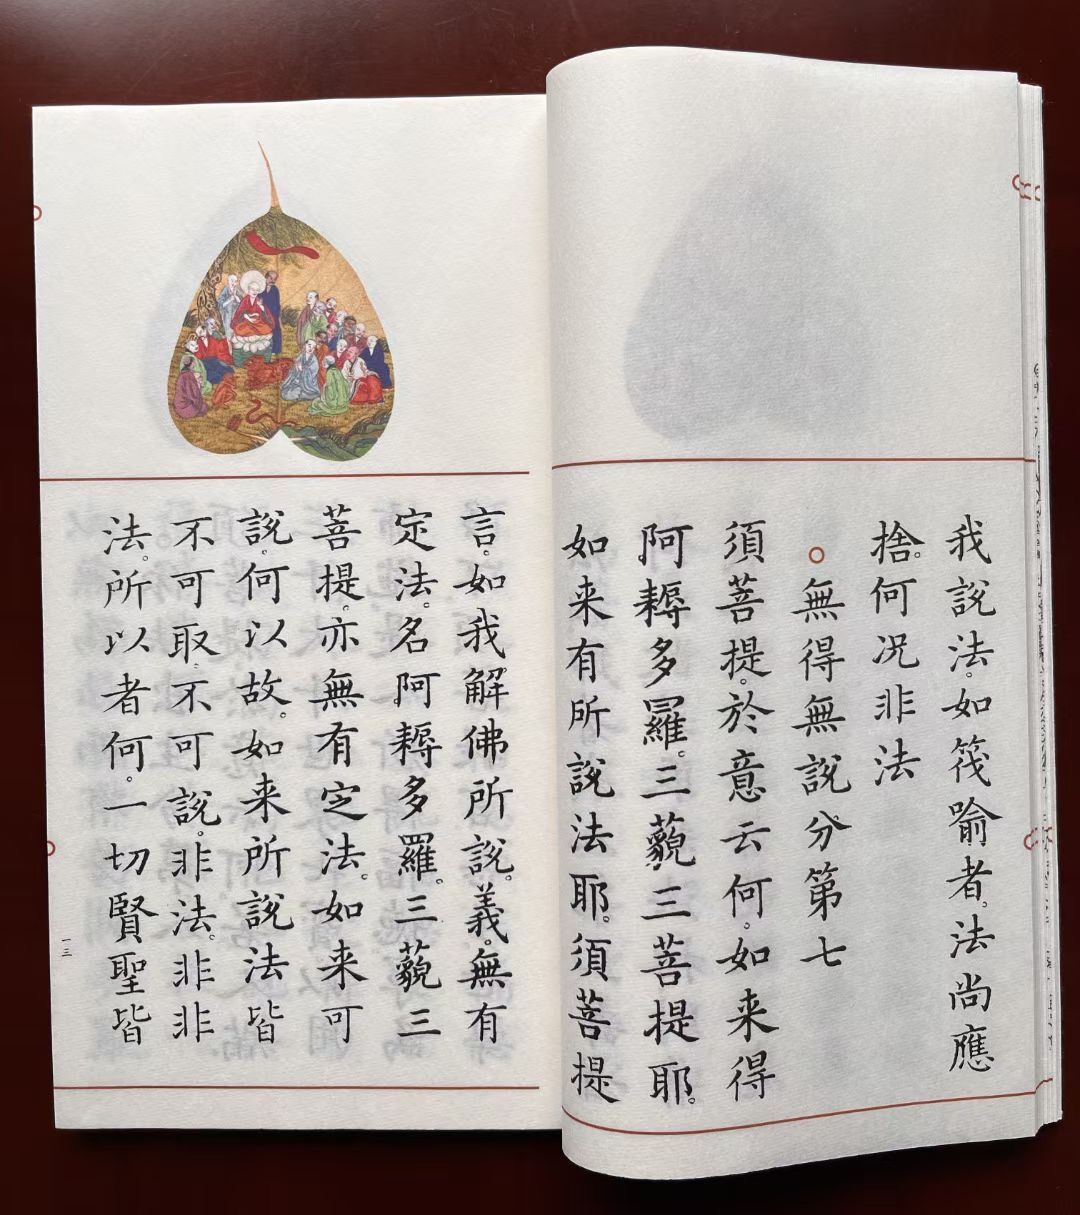 我說法。如筏喻者。法尚應
捨。何況非法
○無得無說分第七
須菩提。於意云何。如来得
阿耨多羅。三藐三菩提耶。
如来有所說法耶。須菩提
言。如我解佛所說。義。無有
定法。名阿耨多羅。三藐三
菩提。亦無有定法。如来可
說。何以故。如来所說法皆
不可取。不可說。非法。非非
法。所以者何。一切賢聖皆
一三